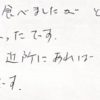 食べましたが と
かったです。
近所にあれば
です。